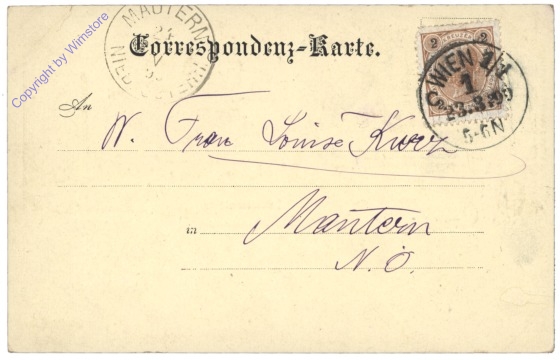 Copyright by Wimstore
MAUTERN
NIED. OESTERR.
Correspondenz-Karte.
2 KREUZER 2
WIEN 1/1
1
5-6N
An
W. Frau Louise Kurz
in Mautern
N. Ö.